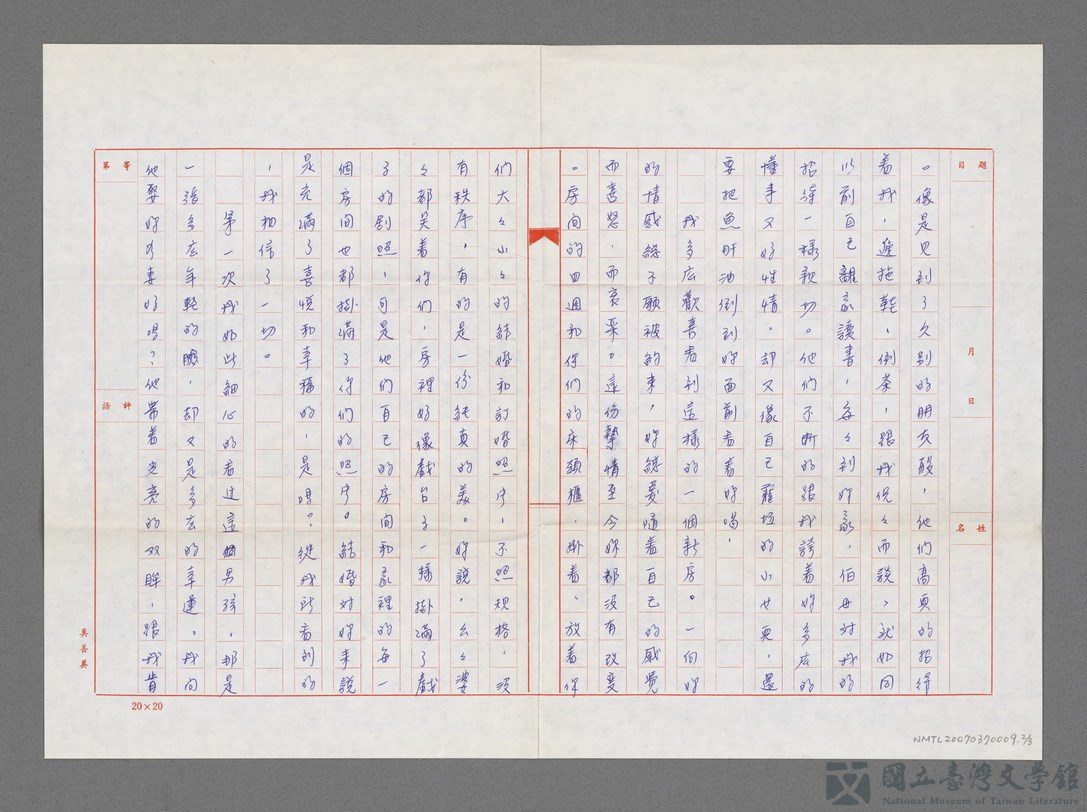 題目
月 日
姓名
。像是見到了久別的朋友般,他們高興的招待
着我,遞拖鞋,倒茶,跟我侃々而談,就如同
以前自己離家讀書,每々到妳家,伯母对我的
招待一樣親切。他們不斷的跟我誇着妳多広的
懂事又好性情。却又像自己寵坏的小女兒,還
要把魚肝油倒到妳面前看着妳喝。
我多広歡喜看到這樣的一個新房。一向妳
的情感總不願被約束,妳總愛隨着自己的感覺
而喜怒,而哀樂。這份摯情至今妳都沒有改變
。房间的四週和你們的床頭櫃,卧着、放着你
們大々小々的結婚和訂婚照片,不照規格,沒
有秩序,有的是一份純真的美。妳說,公々婆
々都笑着你們,房裡好像戲台子一樣掛滿了戲
子的劇照,可是他們自己的房间和家裡的每一
個房间也都掛滿了你們的照片。結婚对妳來說
是充滿了喜悅和幸福的,是嗎?從我所看到的
,我相信了一切。
第一次我如此細心的看过這男孩,那是
一張多広年輕的臉,却又是多広的幸運。我问
他娶妳妻好嗎?他帶着光亮的双眸,跟我肯
等第
評語
真善美
20×20
NMTL20070370009.2/3
國立臺灣文学館
National Museum of Taiwan Literature